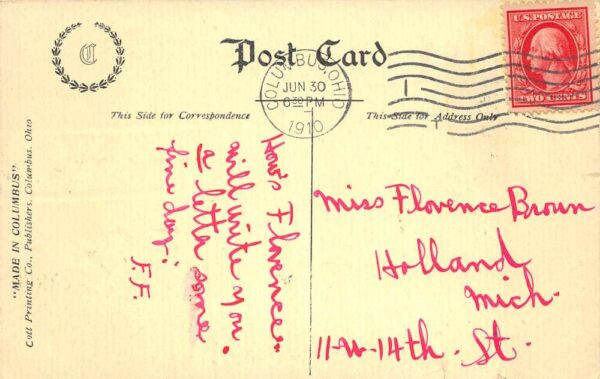 C
Post Card
U.S. POSTAGE
TWO CENTS
COLUMBUS, OHIO
JUN 30
6 30 PM
1910
This Side for Correspondence
This Side for Address Only
"MADE IN COLUMBUS"
Colt Printing Co., Publishers, Columbus, Ohio
How's Florence
will write you
a letter some
fine day.
F.F.
Miss Florence Broun
Holland
Mich.
11-W-14th. St.